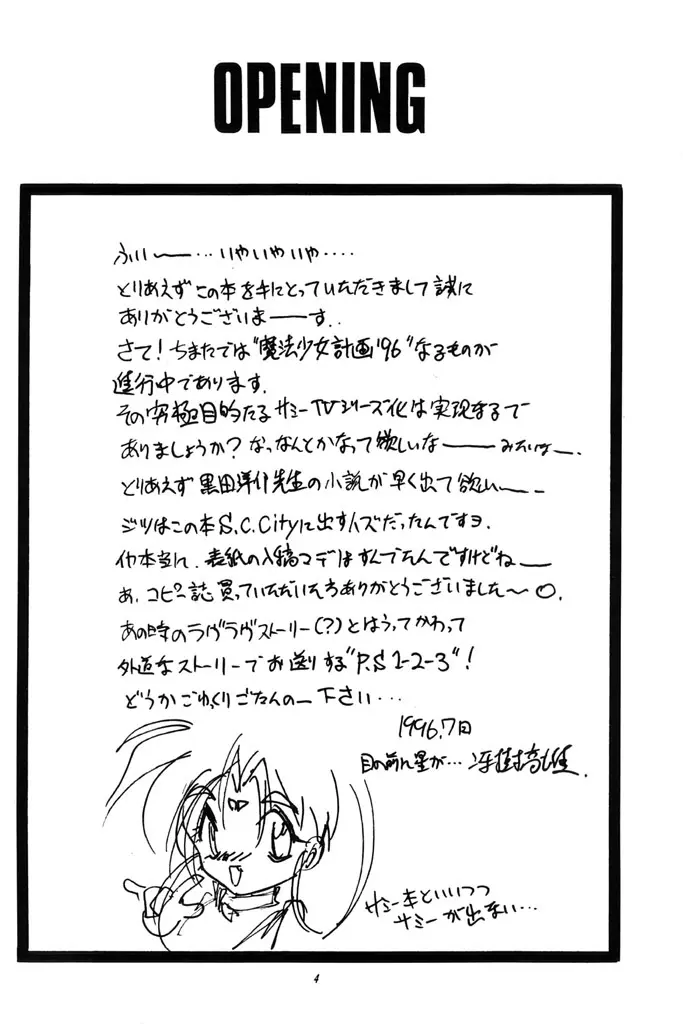 OPENING
ふい〜…いやいやいや‥‥
とりあえずこの本を手にとっていただきまして誠に
ありがとうございまーーす‥
さて!ちまたでは"魔法少女計画'96"なるものが
進行中であります.
その究極目的たるサミーTVシリーズ化は実現するで
ありましょうか?なっなんとかなって欲しいなーーーみたいなー.
とりあえず黒田洋介先生の小説が早く出て欲しい〜ー
ジツはこの本S.C.Cityに出すハズだったんですヨ.
イヤ本当に、表紙の入稿マデはすんでたんですけどねー
あ、コピー誌買っていただいた方ありがとうございました〜○.
あの時のラヴラヴストーリー(?)とはうってかわって
外道なストーリーでお送りする"P.S 1-2-3"!
どうかごゆっくりごたんのー下さい…
1996.7日
目の前に星が…冴樹高雄.
サミー本といいつつ
サミーが出ない…
4